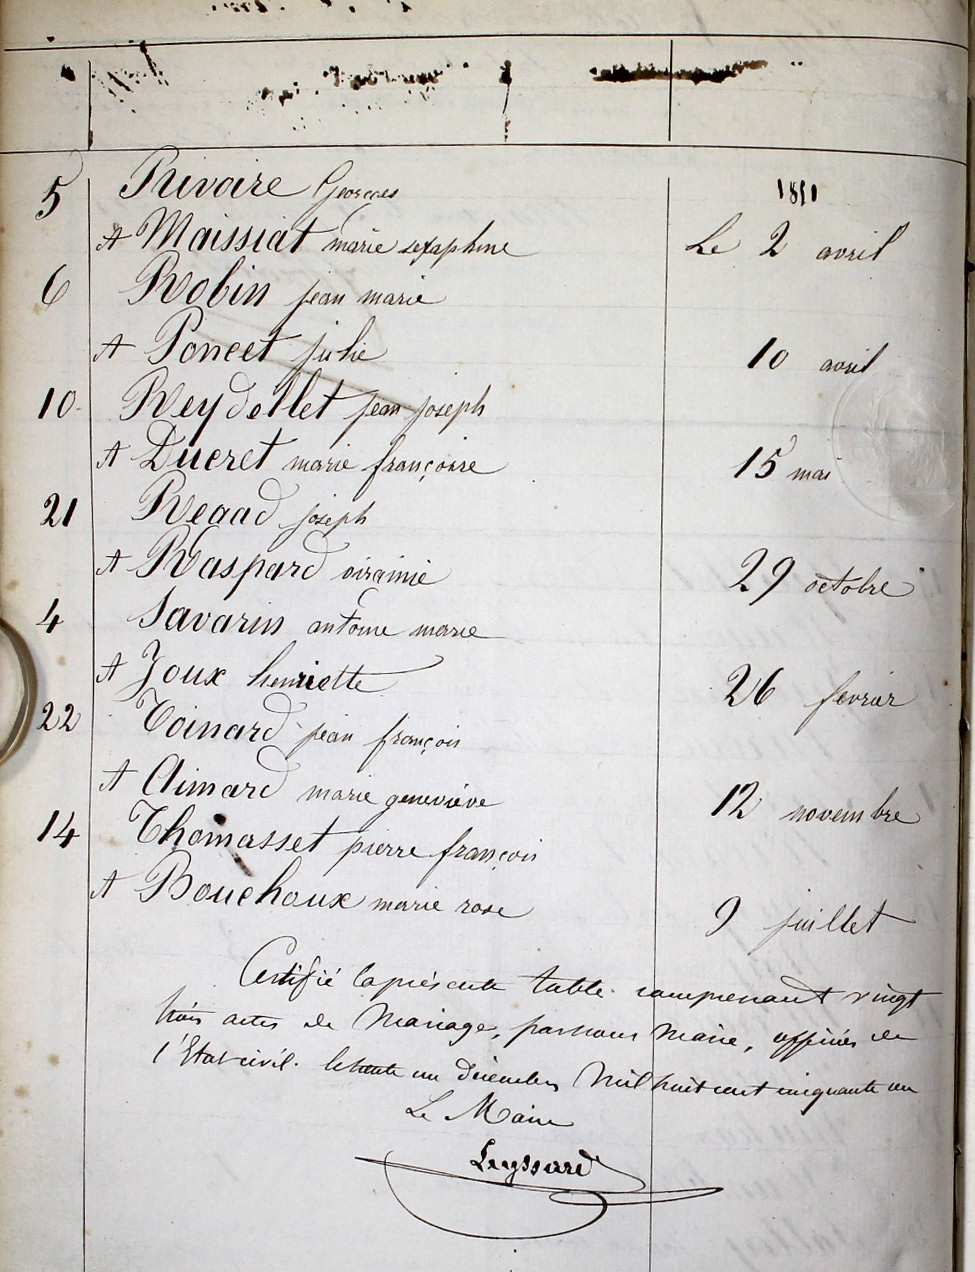 1851
5 Rivoire Georges
A Maissiat marie seraphine Le 2 avril
6 Robin jean marie
A Poncet julie 10 avril
10. Reydellet jean joseph
A Ducret marie françoise 15 mai
21 Regad joseph
A Raspard virginie 29 octobre
4 Savarin antoine marie
A Joux henriette 26 fevrier
22 Toinard jean françois
A Aimard marie geneviève 12 novembre
14 Thomasset pierre françois
A Bouchoux marie rose 9 juillet
Certifié la présente table comprenant vingt
trois actes de Mariage, par nous Maire, officier de
l'Etat civil. le trente un Décembre Mil huit cent cinquante un
Le Maire
Leyssard